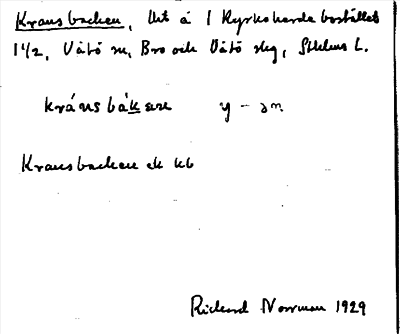 Kransbacken, Ut å 1 Kyrkoherdebostället
1 1/2, Vätö sn, Bro och Vätö slg, Sthlms L.
kránsbàkən y - ən
Kransbacken ek kb
Rickard Norman 1929